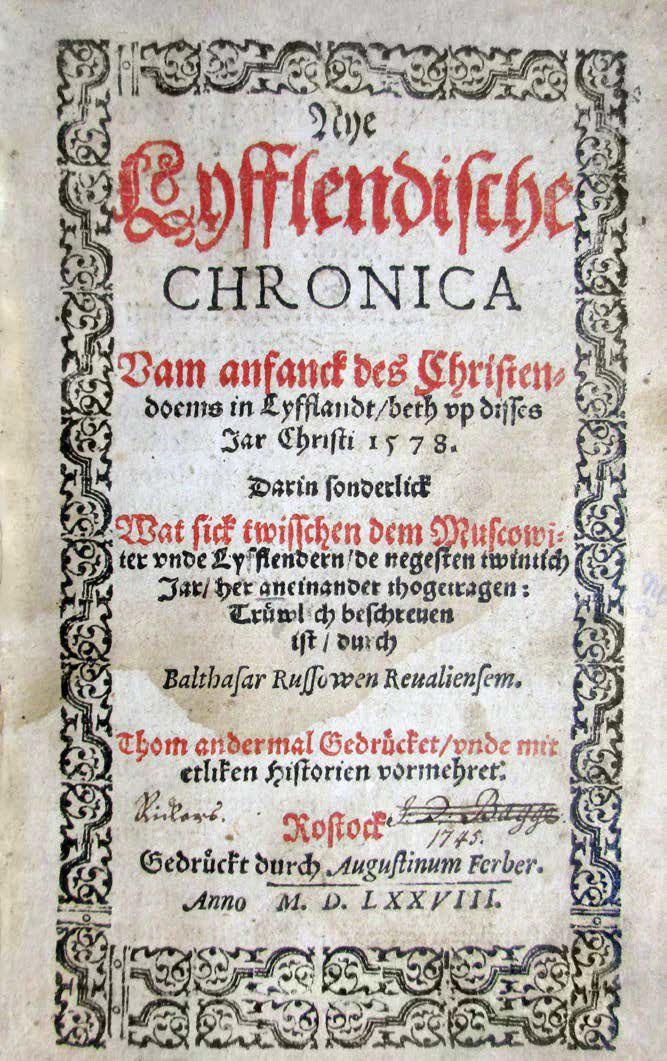 Nye
Lyfflendische
CHRONICA
Vam anfanck des Christen-
doems in Lyfflandt/beth vp disses
Jar Christi 1578.
Darin sonderlick
Wat sick twisschen dem Muscowi-
ter vnde Lyfflendern/de negesten twintich
Jar/her aneinander thogetragen:
Trüwlich beschreuen
ist/durch
Balthasar Russowen Reualiensem.
Thom andermal Gedrücket/vnde mit
etliken Historien vormehret.
Rickers.
J. D. Bagge.
Rostock
1745.
Gedrückt durch Augustinum Ferber.
Anno M. D. LXXVIII.